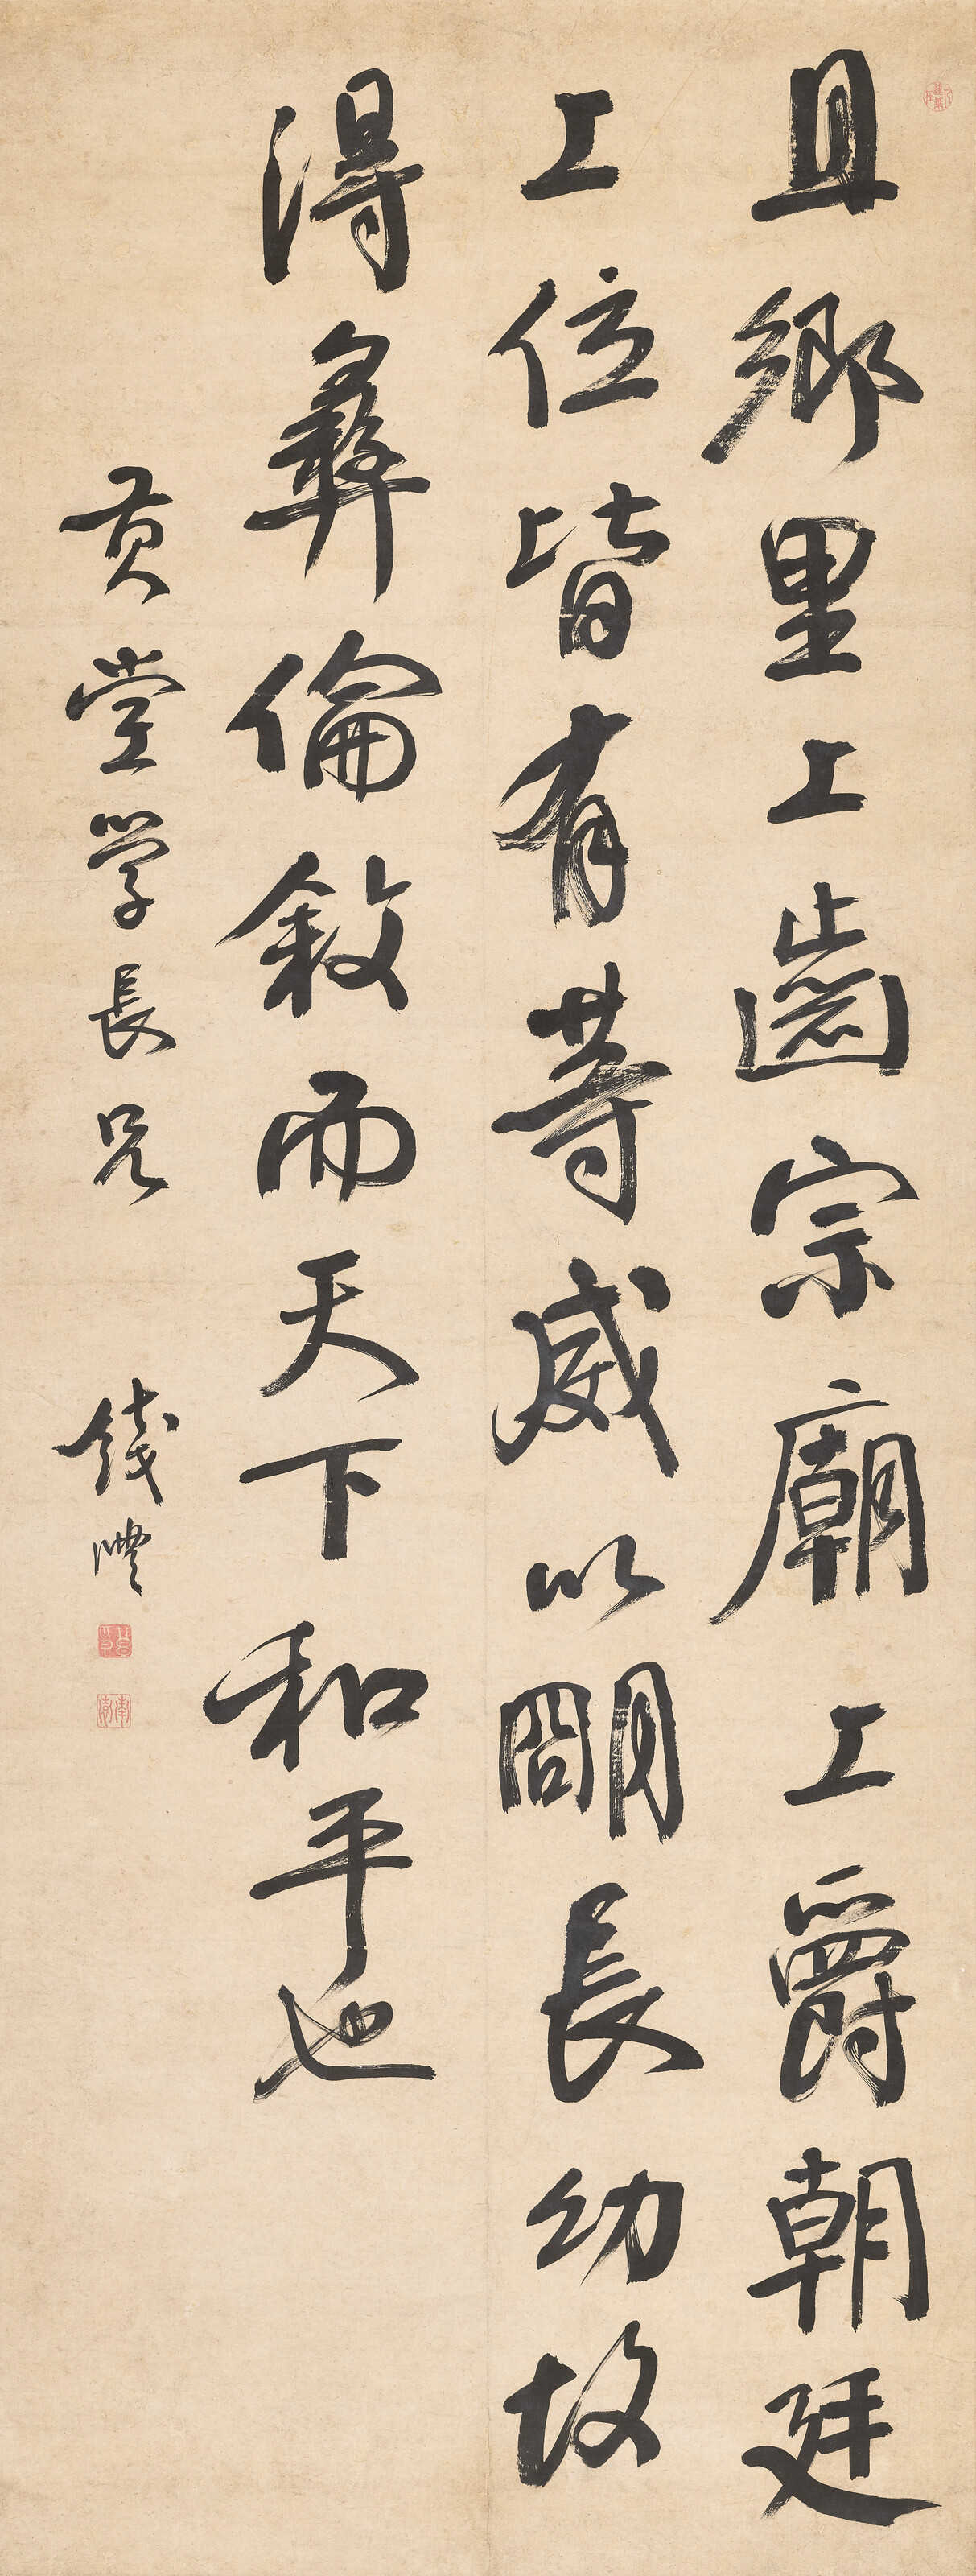 且鄉里上齒宗廟上爵朝廷
上位皆有等威以明長幼故
得彝倫敘而天下和平也
黃堂學長兄 錢灃